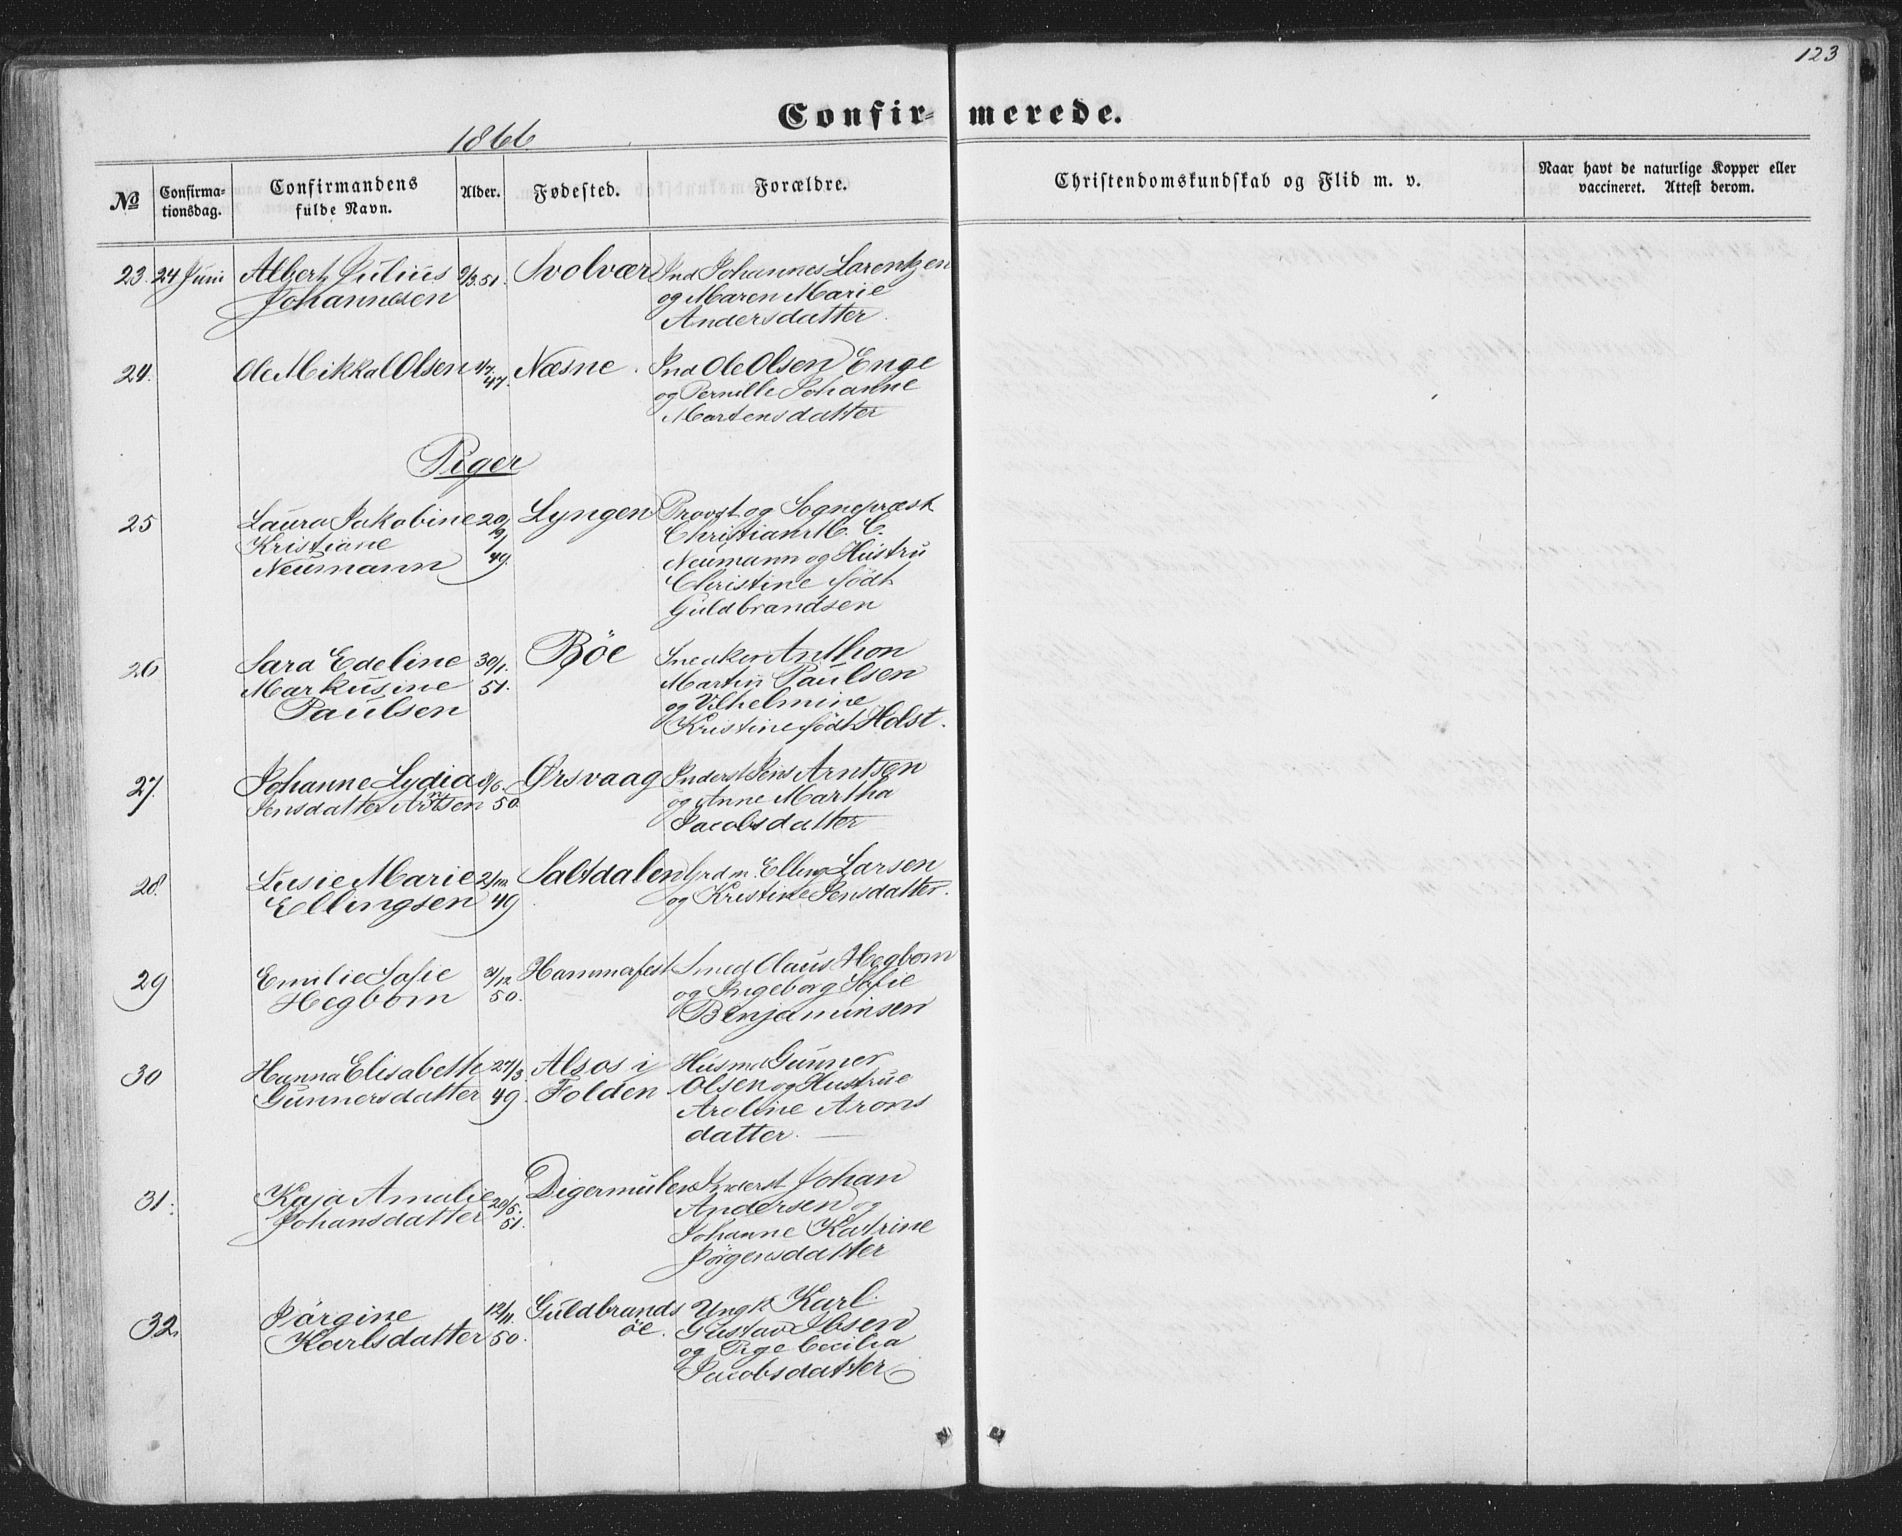 123
Confirmerede.
1866
No
Confirmationsdag.
Confirmandens fulde Navn.
Alder.
Fødested.
Forældre.
Christendomskundskab og Flid m. v.
Naar havt de naturlige Kopper eller vaccineret. Attest derom.
23. 24 Juni Albert Julius 9/3. 51. Svolvær Ind Johannes Larentzen
Johannesen og Maren Marie
Andersdatter.
24. Ole Mikkal Olsen 47. Næsne. Ind Ole Olsen Enge
og Pernille Johanne
Martensdatter
Piger
25 Laura Jakobine 20/9 49. Lyngen Provst og Sognepræst
Kristiane Christian M. C.
Neumann Neumann og Hustru
Christine født
Guldbrandsen
26 Sara Edeline 30/1. 51. Bøe Snedker Anthon
Markusine Martin Paulsen
Paulsen og Vilhelmine
Kristine født Holst.
27. Johanne Lydia 8/6. 50. Ørsvaag Inderst Jens Arntsen
Jensdatter Arntsen og Anne Martha
Jacobsdatter
28. Lusie Marie 2/10 49 Saltdalen Grdm. Elling Larsen
Ellingsen og Kristine Jensdatter.
29 Emilie Sofie 31/12 50. Hammerfest Smed Claus Hegbom
Hegbom og Ingeborg Sofie
Benjaminsen
30 Hanna Elisabeth 27/3. 49. Alsos i Husmd Gunner
Gunnersdatter Folden Olsen og Hustrue
Aroline Arons
datter.
31. Kaja Amalie 20/5. 51. Digermulen Inderst Johan
Johansdatter Andersen og
Johanne Katrine
Jørgensdatter
32. Jørgine 12/11. 50. Guldbrands Ungk. Karl
Karlsdatter øe. Gustav Ibsen
og Pige Cecilia
Jacobsdatter